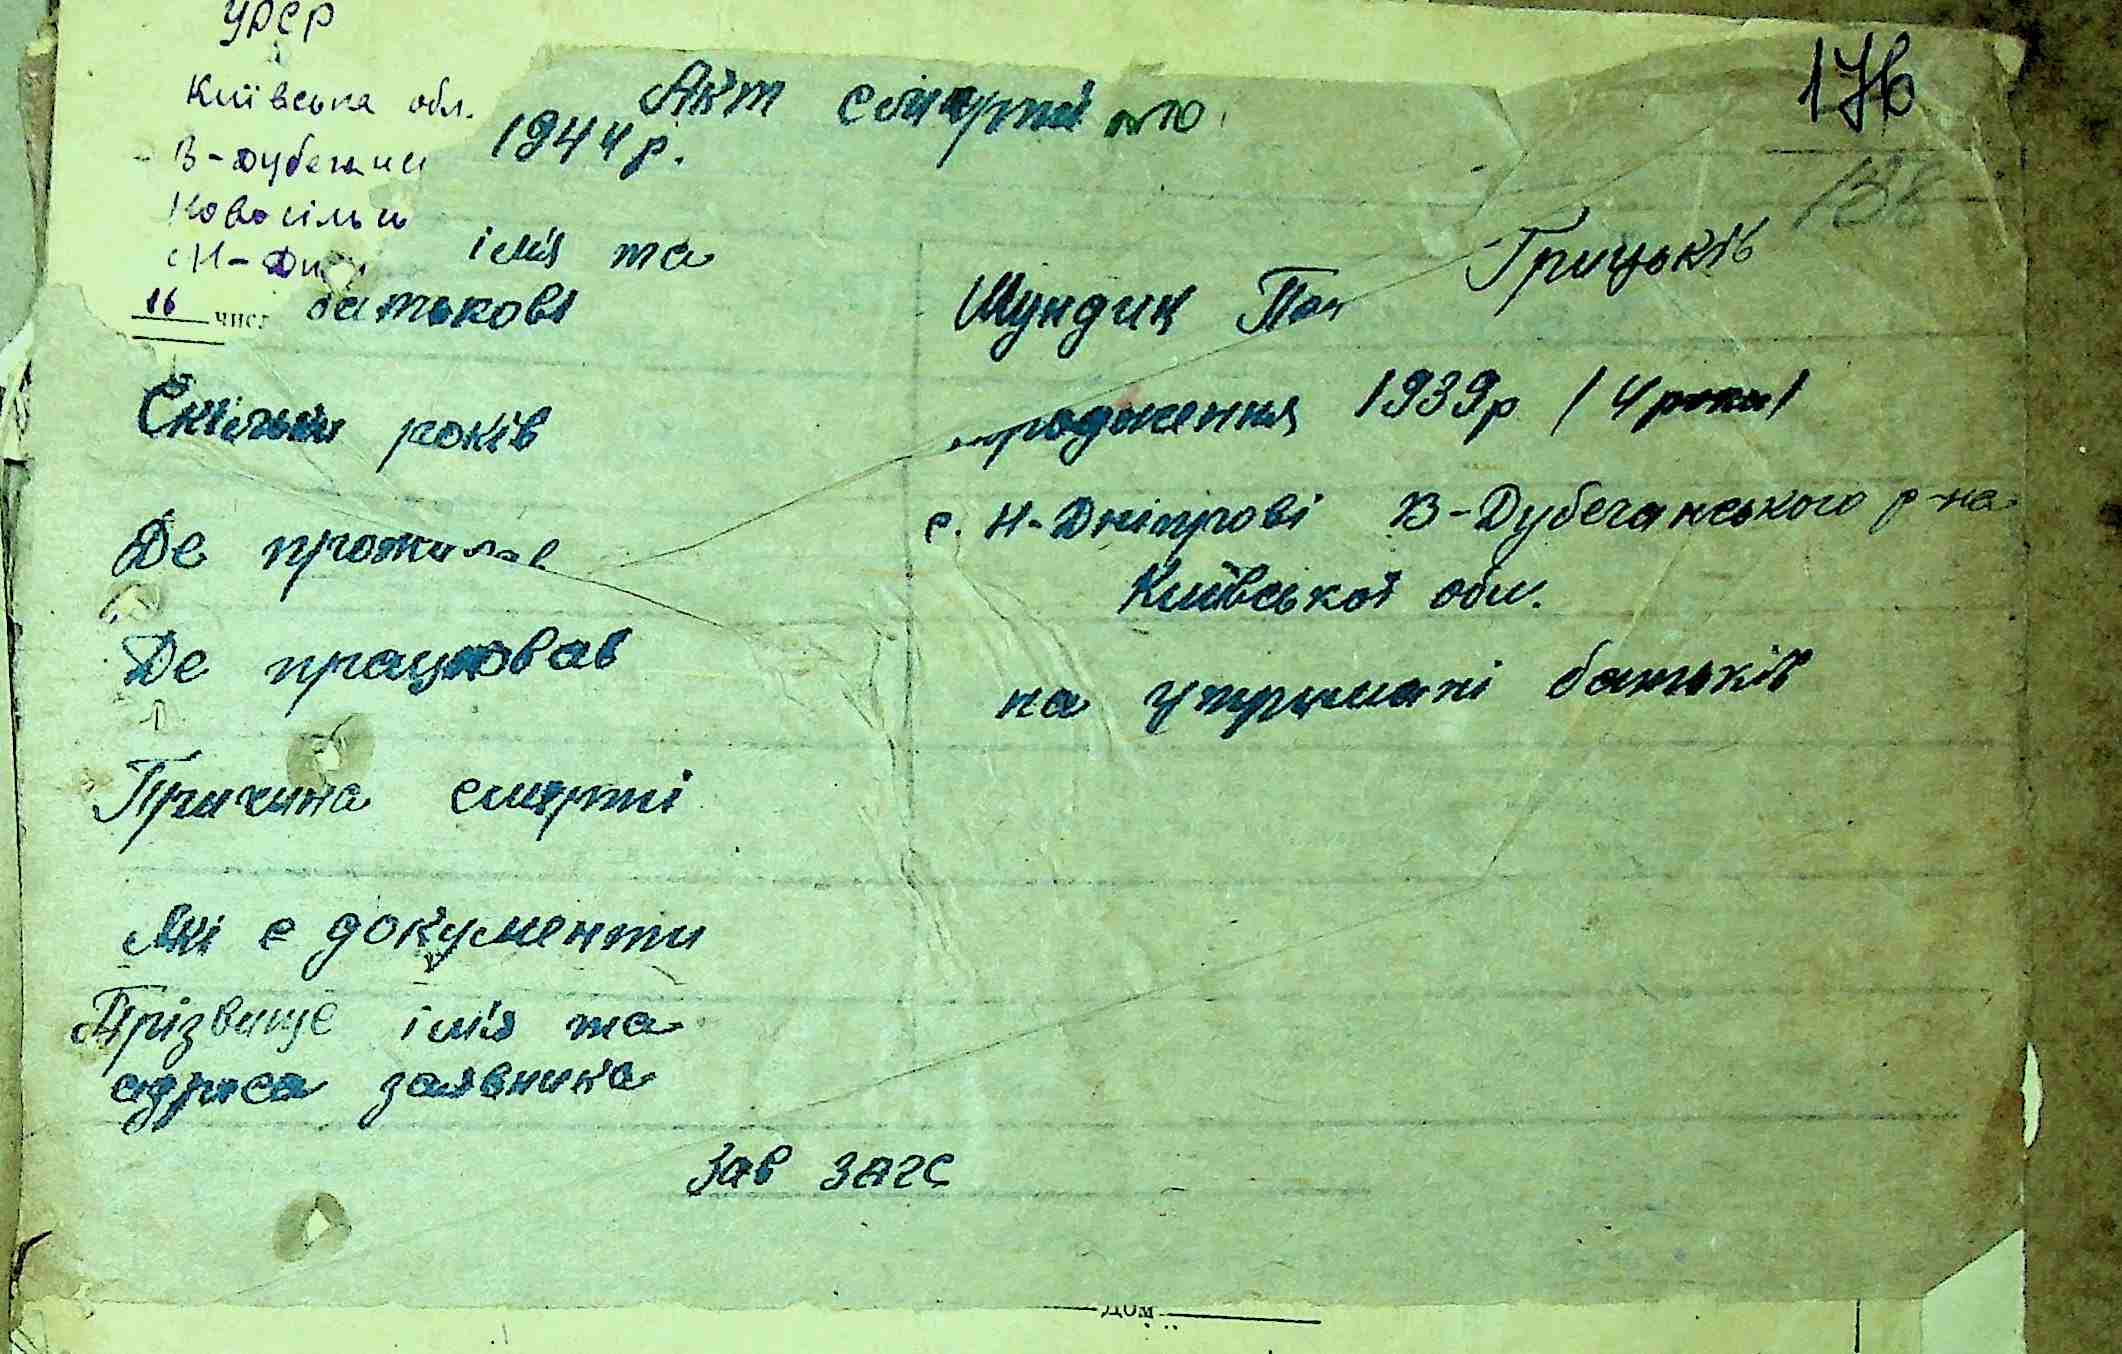 УРСР
Київська обл.
В-Дубечан
Новосільи
Н-Дні
16 числ
Акт смерти №10
1944 р.
176
188
імя та
батькові
Шундик Пан Грицьків
Скільки років
народження 1939р / 4 роки /
Де проживав
с. Н-Дніпрові В-Дубечанського р-на
Київської обл.
Де працював
на утримані батьків
Причина смерти
Які є документи
Прізвище імя та
адреса заявника
Зав ЗАГС
Дом